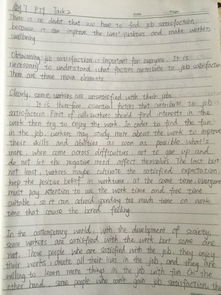 There is no doubt that we have to find job satisfaction,
because it can improve the workers and make worker
Obtaining job satisfaction is important for everyone. It is
necessary to understand what factors contribute to job satisfaction
There are three main elements
Clearly, some workers are unsatisfied with their jobs.
It is therefore essential factors that contribute to job
satisfaction. First of all, workers should find interests in the
work then try to enjoy the work. In order to find the fun
in the job, workers may study more about the work to improve
their skills and abilities as soon as possible. What is
more, when come across difficulties, not to give up and
do not let the negative mood affect themselves. The last but
not least, workers maybe cultivate the satisfied expectation
keep the positive belief in worktime, at the same time everyone
must pay attention to use the work time and free time
suitable, so it can avoid spending too much time on work
time that cause the tired feeling
In the contemporary world, with the development of society,
some workers are satisfied with the work but some are
not. These people who are satisfied with the job they enjoy
their works, devote all their lives in the job and they are
willing to learn more things in the job with fun. On the
other hand, some people who can't gain job satisfaction